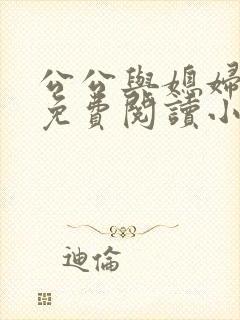 公公與媳婦
免費閱讀小
迪倫